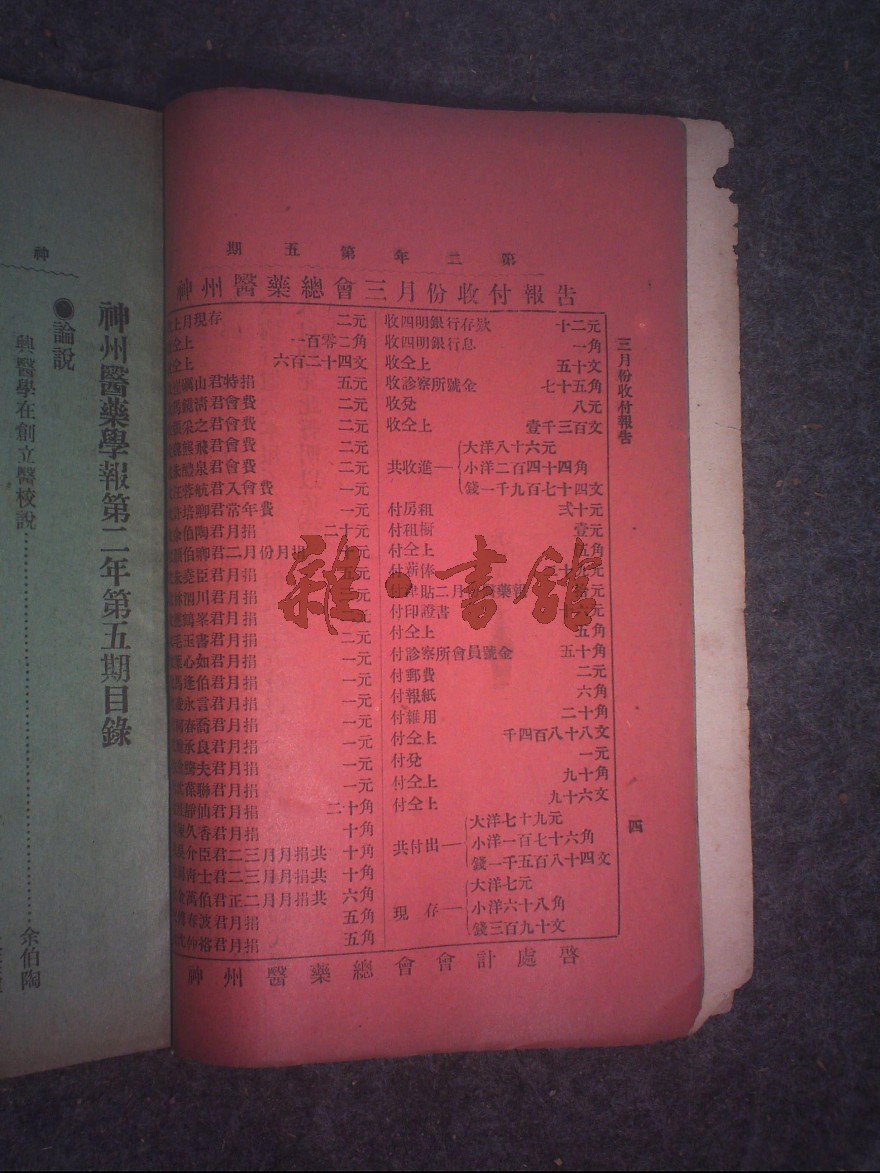 第二年第五期
神州醫藥總會三月份收付報告
三月份收付報告
四
上月現存 二元
仝上 一百零二角
仝上 六百二十四文
山君特捐 五元
鏡淸君會費 二元
采之君會費 二元
飛君會費 二元
朱醴泉君會費 二元
蓉航君入會費 一元
培卿君常年費 一元
余伯陶君月捐 二十元
伯卿君二月份月捐 元
朱堯臣君月捐 五元
林淵川君月捐 元
鶴峯君月捐 元
毛玉書君月捐 二元
心如君月捐 一元
馬逢伯君月捐 一元
永言君月捐 一元
春喬君月捐 一元
承良君月捐 一元
夫君月捐 一元
葆聯君月捐 一元
仙君月捐 二十角
久香君月捐 十角
介臣君二三月月捐共 十角
靑士君二三月月捐共 十角
金萬伯君正二月月捐共 六角
春波君月捐 五角
仲裕君月捐 五角
收四明銀行存欵 十二元
收四明銀行息 一角
收仝上 五十文
收診察所號金 七十五角
收兌 八元
收仝上 壹千三百文
共收進
大洋八十六元
小洋二百四十四角
錢一千九百七十四文
付房租 弍十元
付租櫥 壹元
付仝上 角
付薪俸 元
付津貼二月 藥報 元
付印證書 元
付仝上 五角
付診察所會員號金 五十角
付郵費 二元
付報紙 六角
付雜用 二十角
付仝上 千四百八十八文
付兌 一元
付仝上 九十角
付仝上 九十六文
共付出
大洋七十九元
小洋一百七十六角
錢一千五百八十四文
現存
大洋七元
小洋六十八角
錢三百九十文
神州醫藥總會會計處啓
雜·書館
神
神州醫藥學報第二年第五期目錄
●論説
興醫學在創立醫校説……………………余伯陶